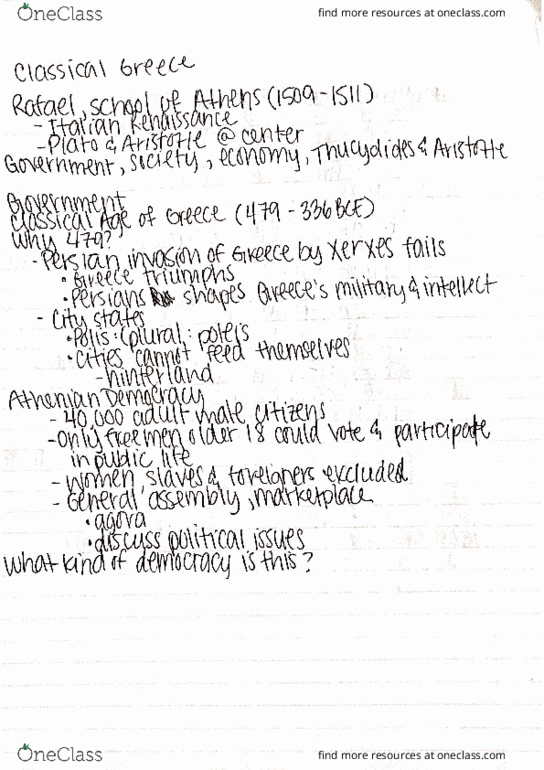 OneClass
find more resources at oneclass.com
Classical Greece
Rafael, school of Athens (1509-1511)
- Italian Renaissance
- Plato & Aristotle @ center
Government, society, economy, Thucydides & Aristotle
Government
Classical Age of Greece (479 - 336 BCE)
Why 479?
- Persian invasion of Greece by Xerxes fails
• Greece triumphs
• Persians shapes Greece's military & intellect
- City states
• Polis: (plural: poleis
• Cities cannot feed themselves
- hinterland
Athenian Democracy
- 40,000 adult male citizens
- Only free men older 18 could vote & participate
in public life
- women slaves & foreigners excluded
- General assembly, marketplace
• agora
• discuss political issues
What kind of democracy is this?
OneClass
find more resources at oneclass.com